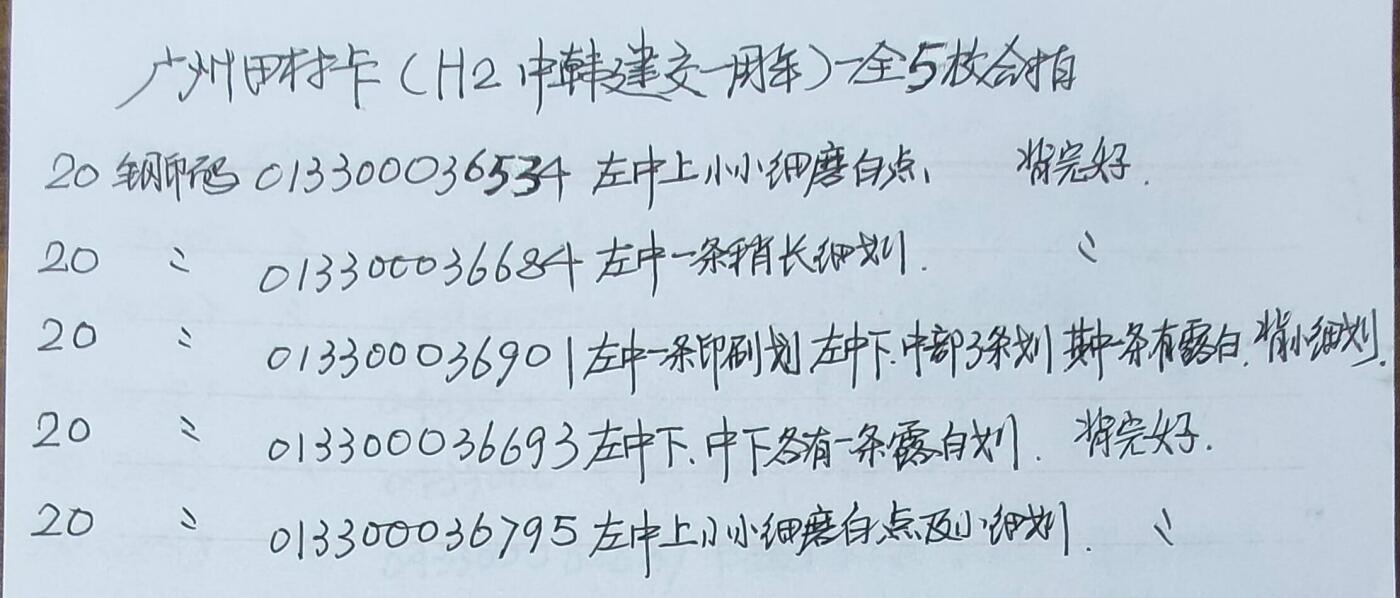 广州田村卡(H2中韩建交一周年)一全5枚合拍
20 钢印码 013300036534 左中上小小细磨白点、 背完好.
20 〃 013300036684 左中一条稍长细划. 〃
20 〃 013300036901 左中一条印刷划 左中下.中部3条划 其中一条有露白. 背小细划.
20 〃 013300036693 左中下.中下各有一条露白划. 背完好.
20 〃 013300036795 左中上小小细磨白点及小细划. 〃